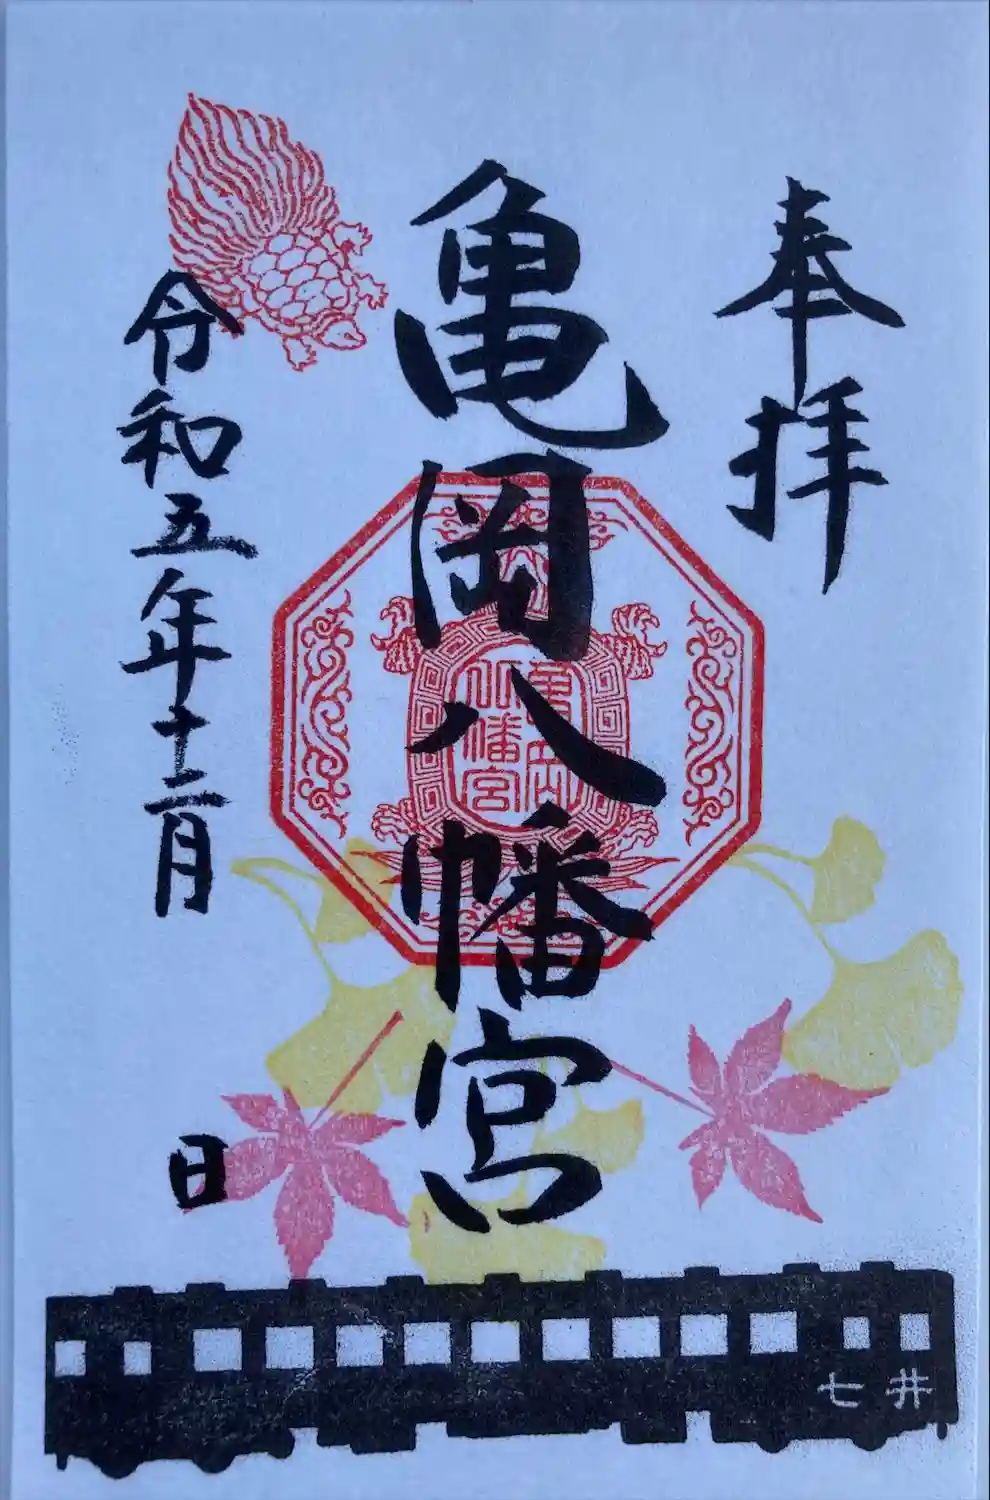 奉拝
亀岡八幡宮
亀岡
八幡宮
令和五年十二月
日
七井